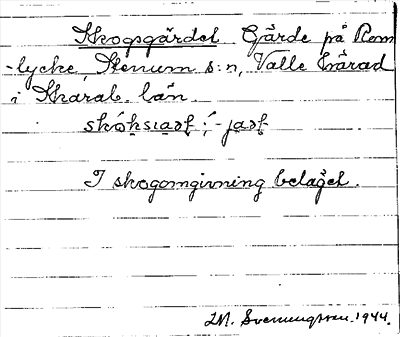 Skogsgärdet Gärde på Rom
-lycke, Stenum s:n, Valle härad
i Skarab. län.
I skogomgivning beläget.
M. Svenungsson. 1944.